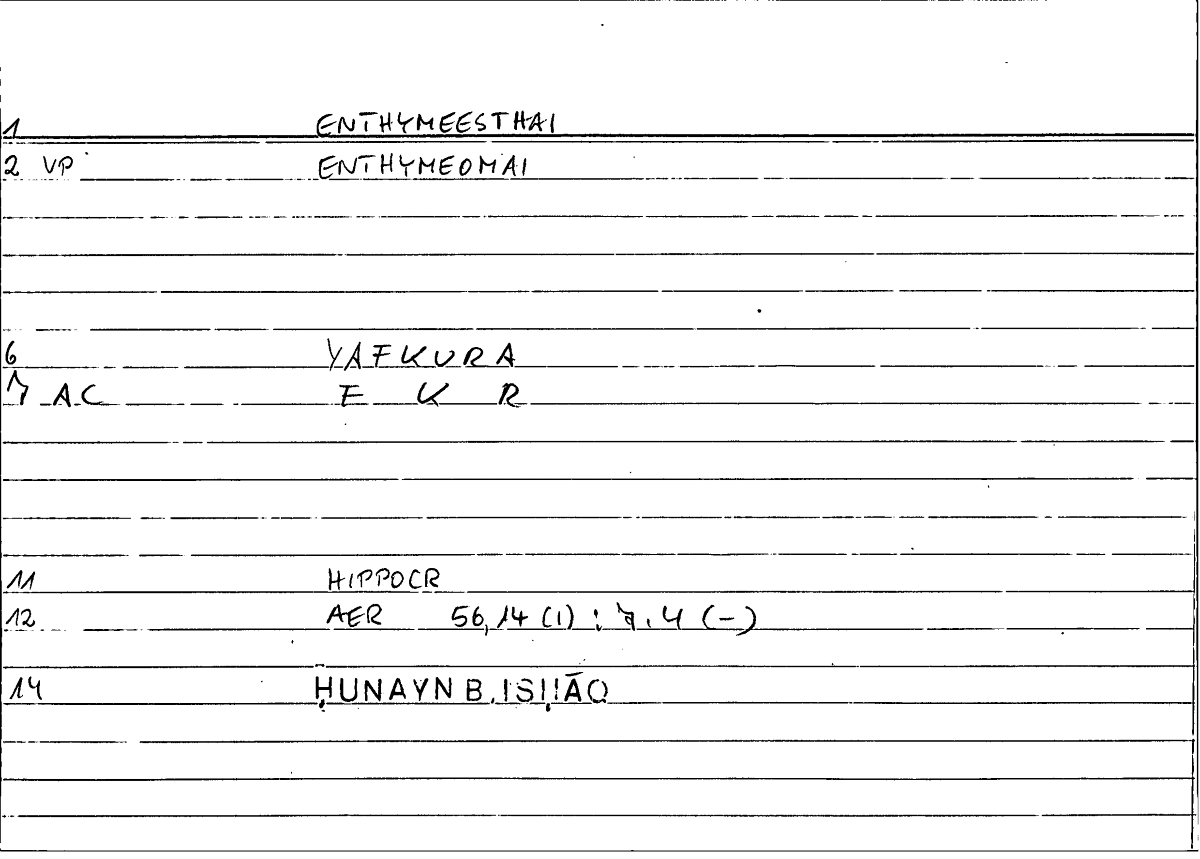 1 ENTHYMEESTHAI
2 VP ENTHYMEOMAI
6 YAFKURA
7 AC F K R
11 HIPPOCR
12 AER 56,14 (1) : 7.4 (-)
14 ḤUNAYN B. ISḤĀQ